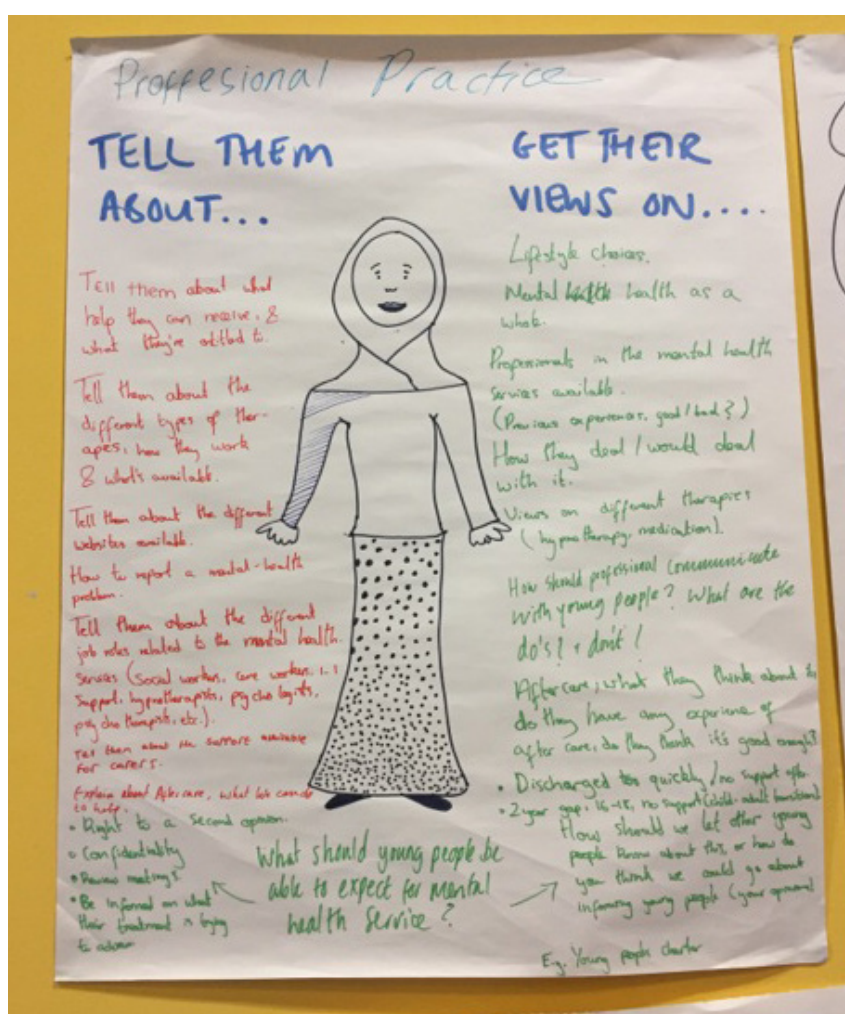 Proffesional Practice
TELL THEM
ABOUT...
Tell them about what
help they can receive, &
what they're entitled to.
Tell them about the
different types of ther-
apies, how they work
& who's available.
Tell them about the different
websites available.
How to report a mental-health
problem.
Tell them about the different
job roles related to the mental health
services (social workers, care workers, 1-1
support, hypnotherapists, psychologists,
psychotherapists, etc.).
Tell them about the support available
for carers.
Explain about Aftercare, what
to help.
• Right to a second opinion.
• Confidentiality
• Review meetings
• Be informed on what
their treatment is trying
to
GET THEIR
VIEWS ON....
Lifestyle choices.
Mental health as a
whole.
Professionals in the mental health
services available.
(Previous experiences, good/bad?)
How they deal/would deal
with it.
Views on different therapies
(hypnotherapy, medication).
How should professional communicate
with young people? What are the
do's? + dont!
Aftercare, what they think about it,
do they have any experience of
after care, do they think it's good enough?
• Discharged too quickly/no support after
• 2 year gap, 16-18, no support (child-adult transition)
How should we let other young
people know about this, or how do
you think we could go about
informing young people (your opinion)
E.g. Young people charter
What should young people be
able to expect for mental
health service?